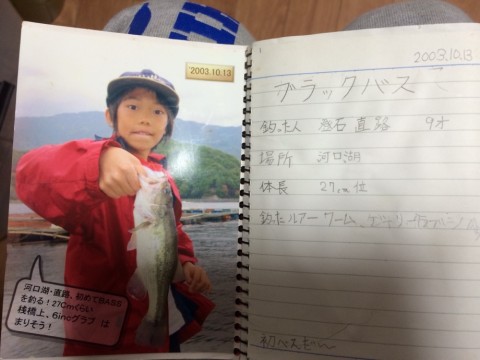 2003.10.13
河口湖・直路、初めて読んらら
を釣る!27Cmくらい
桟橋上、6inoグラブ は
まりそう!
2003.10.13
ブラックバス
釣った人 直路 9才
場所 河口湖
体長 27cm 位
釣ったルアー ワーム、